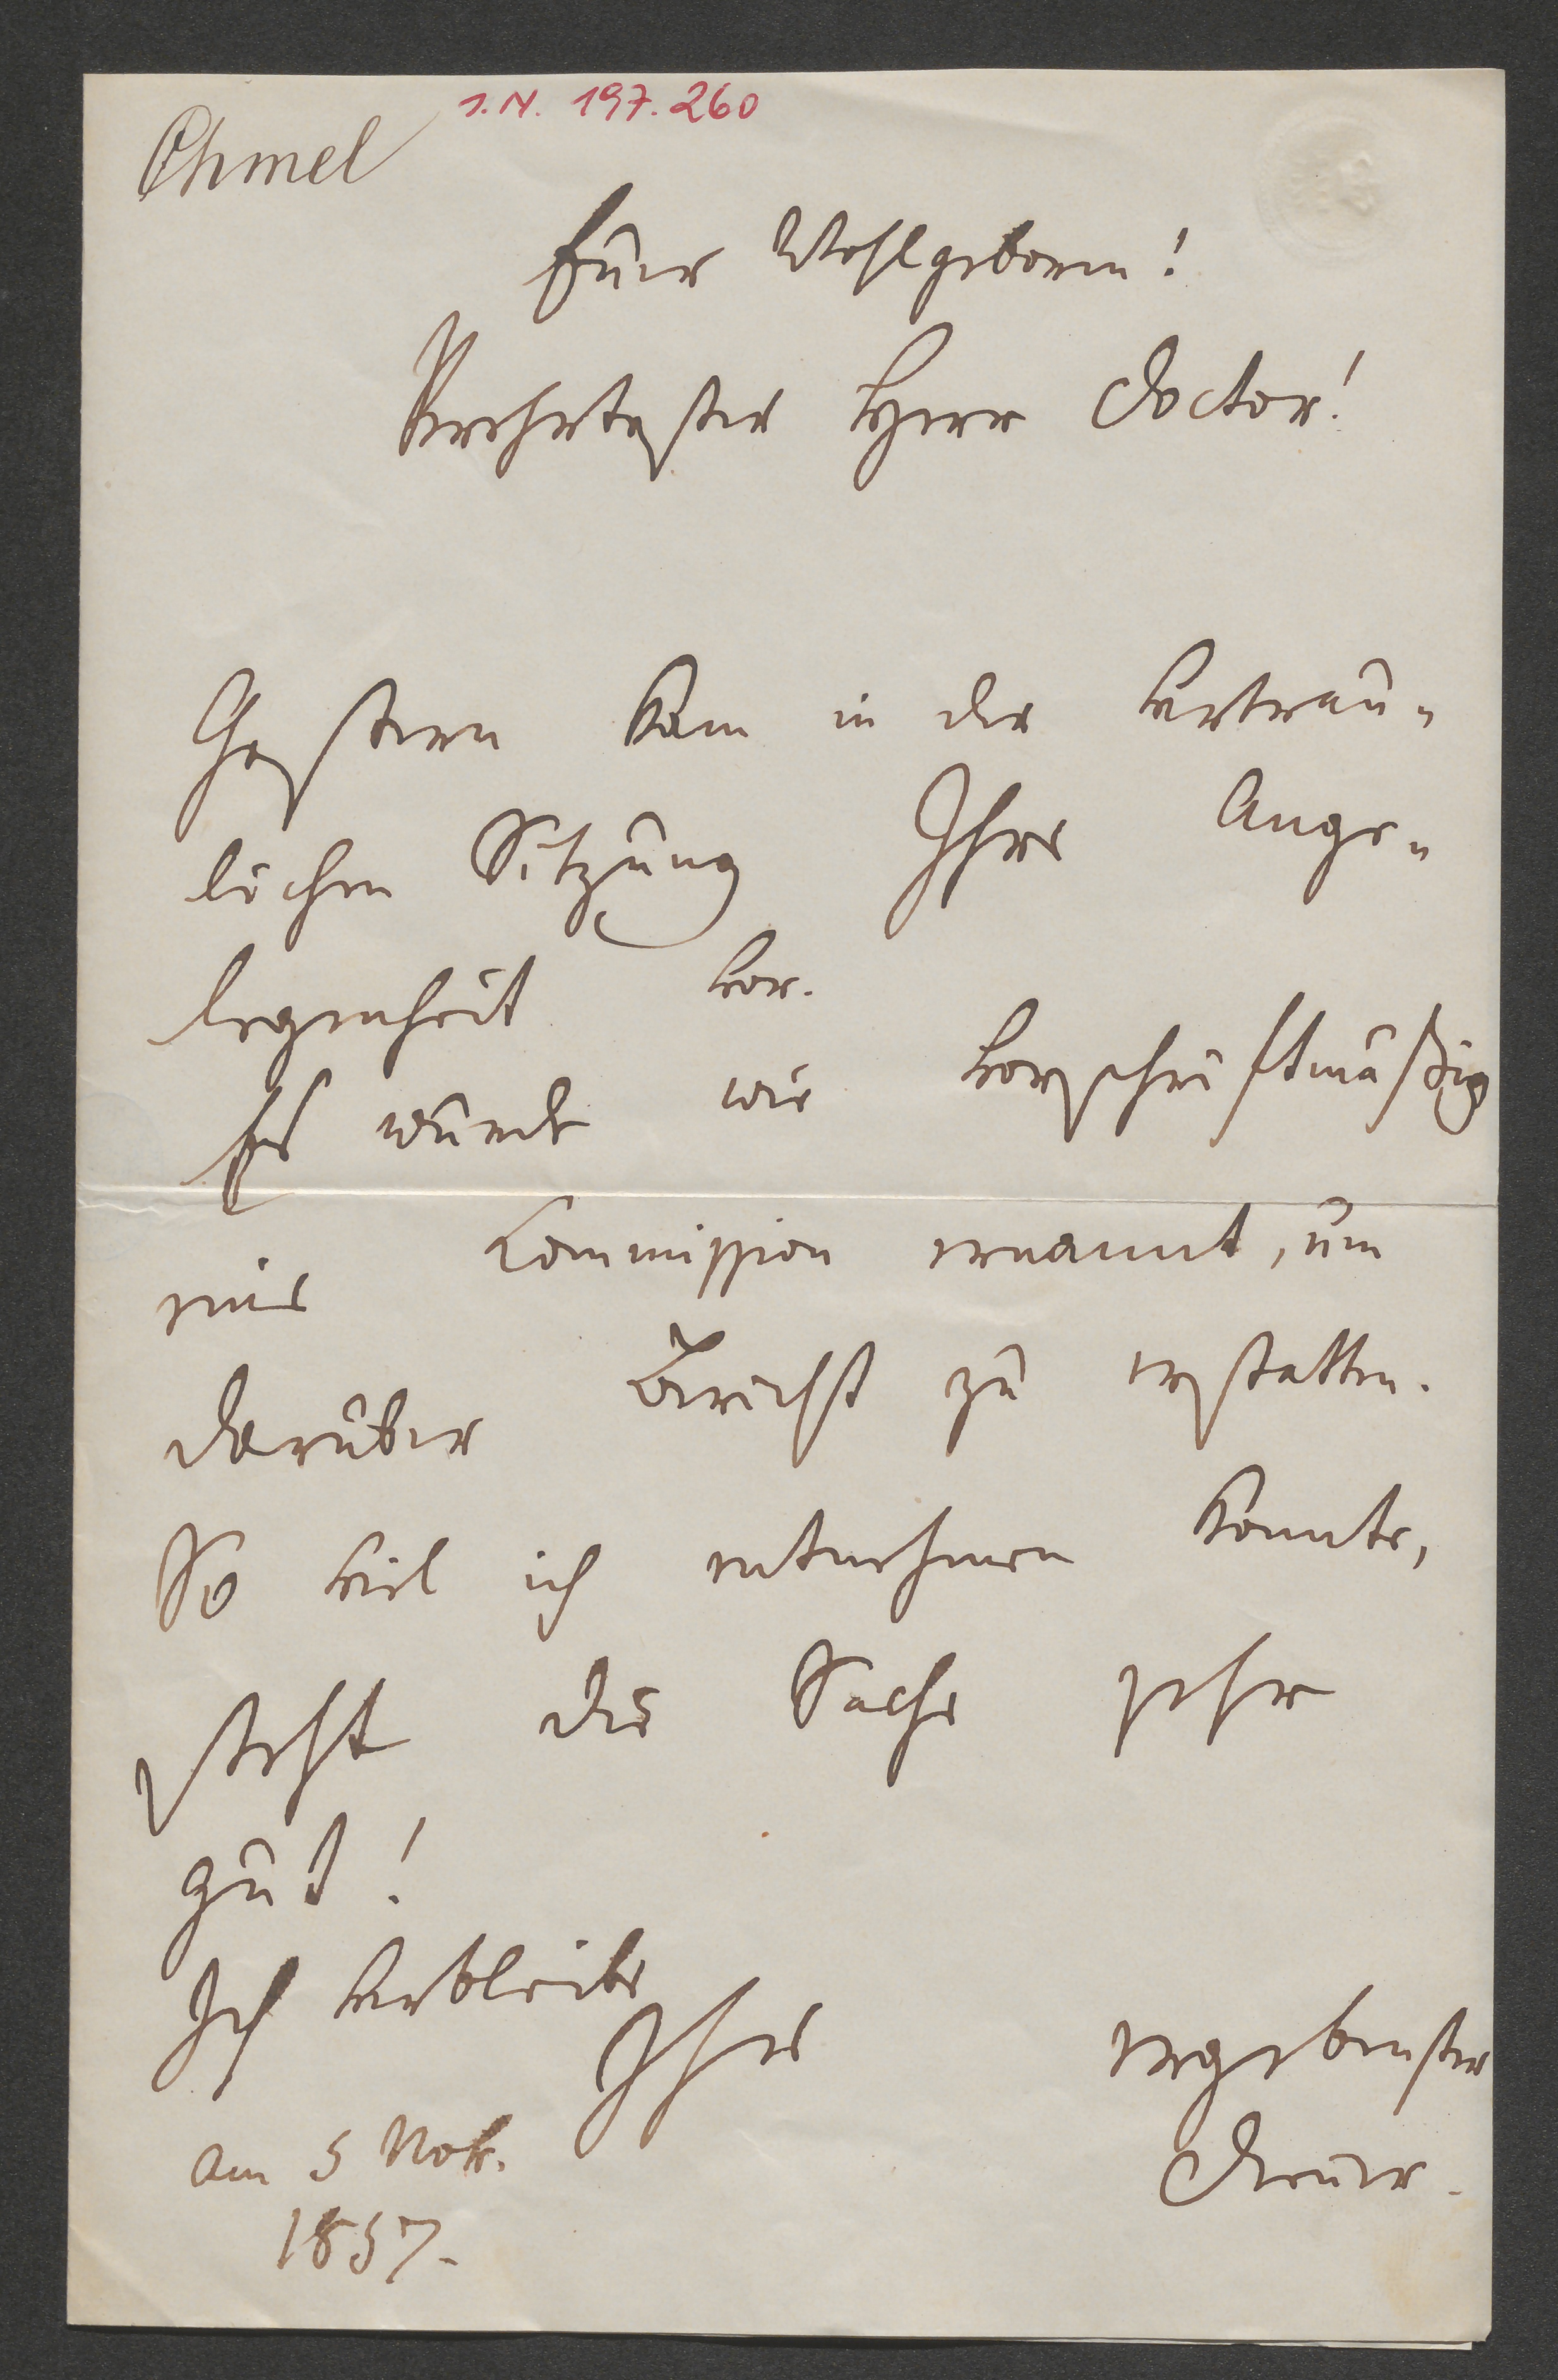 I.N. 197.260
Chmel
Euer Wohlgeboren!
Verehrtester Herr Doctor!
Gestern kam in der vertrau-
lichen Sitzung Ihre Ange-
legenheit vor.
Es wurde wie vorschriftmäßig
eine Commission ernannt, um
darüber Bericht zu erstatten.
So viel ich entnehmen konnte,
steht die Sache sehr
gut!
Ich verbleibe
Ihr ergebenster
Diener.
Am 5 Nov.
1857.